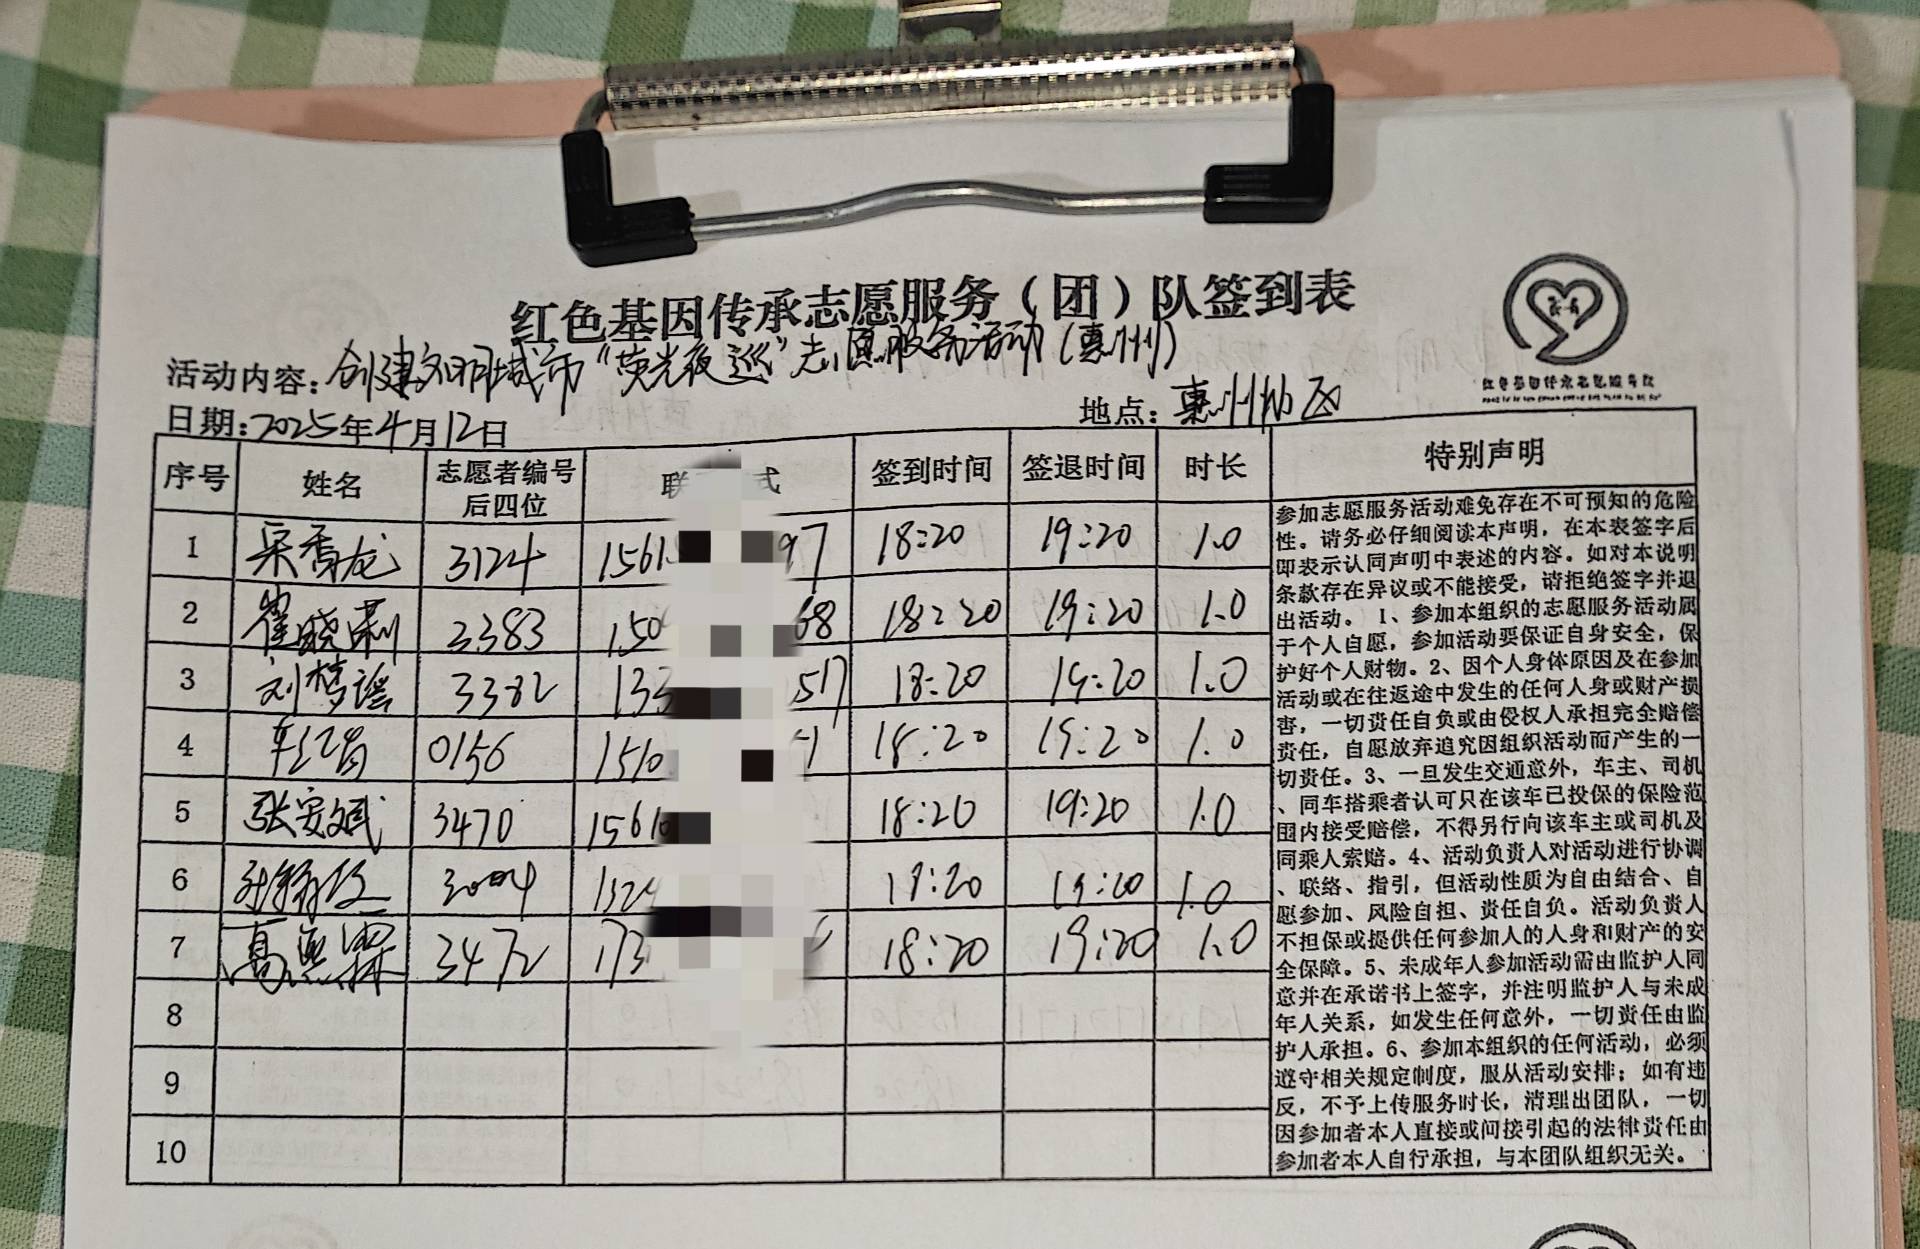 红色基因传承志愿服务（团）队签到表
活动内容：创建文明城市“荧光夜巡”志愿服务活动(惠州)
日期：2025年4月12日 地点：惠州社区
序号 姓名 志愿者编号后四位 联 式 签到时间 签退时间 时长 特别声明
1 宋香龙 3124 1561 97 18:20 19:20 1.0
2 崔晓莉 3383 150 68 18:20 19:20 1.0
3 刘梦谣 3382 133 517 18:20 19:20 1.0
4 0156 1510 1 18:20 19:20 1.0
5 张安斌 3470 1561 18:20 19:20 1.0
6 3004 132 19:20 1.0
7 高 霖 3472 173 18:20 19:20 1.0
8
9
10
参加志愿服务活动难免存在不可预知的危险
性。请务必仔细阅读本声明，在本表签字后
即表示认同声明中表述的内容。如对本说明
条款存在异议或不能接受，请拒绝签字并退
出活动。 1、参加本组织的志愿服务活动属
于个人自愿，参加活动要保证自身安全，保
护好个人财物。2、因个人身体原因及在参加
活动或在往返途中发生的任何人身或财产损
害，一切责任自负或由侵权人承担完全赔偿
责任，自愿放弃追究因组织活动而产生的一
切责任。3、一旦发生交通意外，车主、司机
、同车搭乘者认可只在该车已投保的保险范
围内接受赔偿，不得另行向该车主或司机及
同乘人索赔。4、活动负责人对活动进行协调
、联络、指引，但活动性质为自由结合、自
愿参加、风险自担、责任自负。活动负责人
不担保或提供任何参加人的人身和财产的安
全保障。5、未成年人参加活动需由监护人同
意并在承诺书上签字，并注明监护人与未成
年人关系，如发生任何意外，一切责任由监
护人承担。6、参加本组织的任何活动，必须
遵守相关规定制度，服从活动安排；如有违
反，不予上传服务时长，清理出团队，一切
因参加者本人直接或间接引起的法律责任由
参加者本人自行承担，与本团队组织无关。